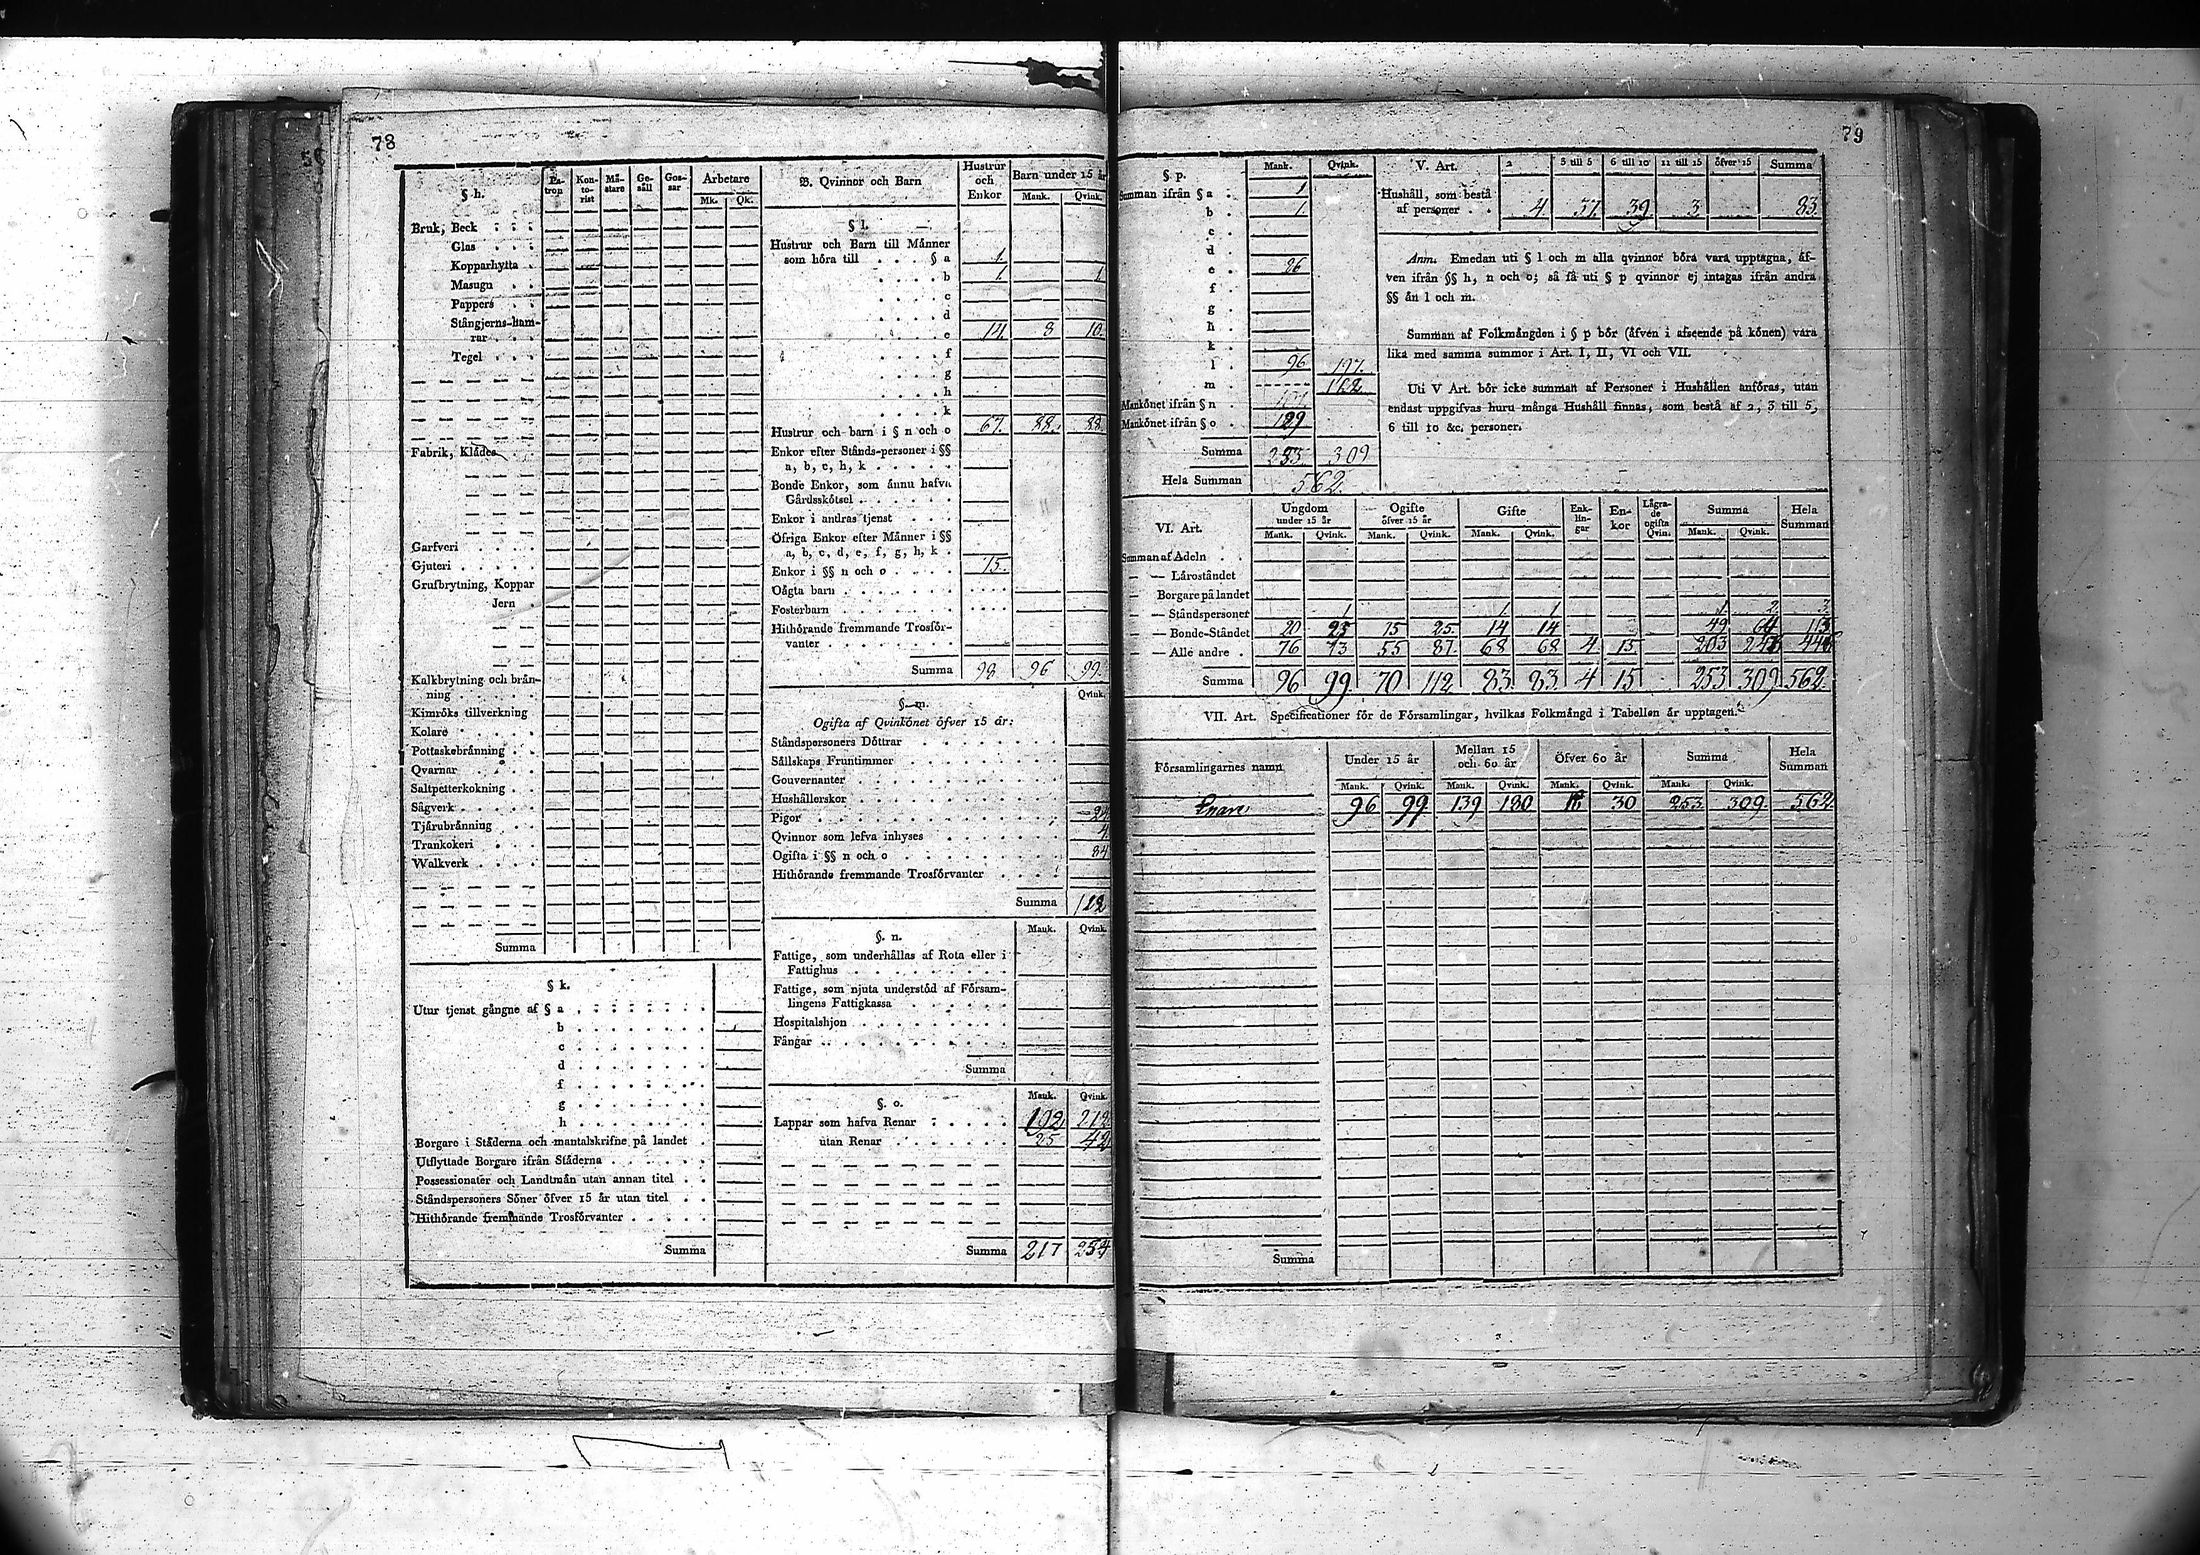 78
§ h.
Pa-tron Kon-to-rist Mä-stare Ge-säll Gos-sar Arbetare
Mk. Qk.
Bruk, Beck
Glas
Kopparhytta
Masugn
Pappers
Stångjerns-ham-
rar
Tegel
Fabrik, Klädes
Garfveri
Gjuteri
Grufbrytning, Koppar
Jern
Kalkbrytning och brän-
ning
Kimröks tillverkning
Kolare
Pottaskebränning
Qvarnar
Saltpetterkokning
Sågverk
Tjärubränning
Trankokeri
Walkverk
Summa
§ k.
Utur tjenst gångne af § a
b
c
d
f
g
h
Borgare i Städerna och mantalskrifne på landet
Utflyttade Borgare ifrån Städerna
Possessionater och Landtmän utan annan titel
Ståndspersoners Söner öfver 15 år utan titel
Hithörande fremmande Trosförvanter
Summa
B. Qvinnor och Barn Hustrur och Enkor Barn under 15 år
Mank. Qvink.
§ l.
Hustrur och Barn till Männer
som höra till § a 1.
b 1 1
c
d
e 14. 8 10.
f
g
h
k
Hustrur och barn i § n och o 67. 88. 88.
Enkor efter Stånds-personer i §§
a, b, c, h, k
Bonde Enkor, som ännu hafva
Gårdsskötsel
Enkor i andras tjenst
Öfriga Enkor efter Männer i §§
a, b, c, d, e, f, g, h, k
Enkor i §§ n och o 15.
Oägta barn
Fosterbarn
Hithörande fremmande Trosför-
vanter
Summa 98 96 99.
§ m. Qvink.
Ogifta af Qvinkönet öfver 15 år:
Ståndspersoners Döttrar
Sällskaps Fruntimmer
Gouvernanter
Hushållerskor
Pigor 24
Qvinnor som lefva inhyses 4
Ogifta i §§ n och o 84
Hithörande fremmande Trosförvanter
Summa 112
§. n. Mank. Qvink.
Fattige, som underhållas af Rota eller i
Fattighus
Fattige, som njuta understöd af Försam-
lingens Fattigkassa
Hospitalshjon
Fångar
Summa
§. o. Mank. Qvink.
Lappar som hafva Renar 192 212
utan Renar 25 42
Summa 217 254
79
§ p. Mank. Qvink.
Summan ifrån § a 1
b 1.
c
d
e 26
f
g
h
k
l 96 197.
m 112
Mankönet ifrån § n
Mankönet ifrån § o 129
Summa 253. 309
Hela Summan 562.
V. Art. 2 3 till 5 6 till 10 11 till 15 öfver 15 Summa
Hushåll, som bestå
af personer 4 37 39 3 83.
Anm. Emedan uti § l och m alla qvinnor böra vara upptagna, äf-
ven ifrån §§ h, n och o; så få uti § p qvinnor ej intagas ifrån andra
§§ än l och m.
Summan af Folkmängden i § p bör (äfven i afseende på könen) vara
lika med samma summor i Art. I, II, VI och VII.
Uti V Art. bör icke summan af Personer i Hushållen anföras, utan
endast uppgifvas huru många Hushåll finnas, som bestå af 2, 3 till 5,
6 till 10 &c. personer.
VI. Art. Ungdom under 15 år Ogifte öfver 15 år Gifte Enk-lin-gar En-kor Lägra-de ogifta Qvin. Summa Hela Summan
Mank. Qvink. Mank. Qvink. Mank. Qvink. Mank. Qvink.
Summan af Adeln
— — Läroståndet
— Borgare på landet
— — Ståndspersoner 1 1. 1 1. 2. 3.
— — Bonde-Ståndet 20 25 15 25. 14 14 49 64 113
— — Alle andre 76 73 55 87. 68 68 4 15 203 243 446
Summa 96 99 70 112 83 83. 4 15 253 309 562.
VII. Art. Specificationer för de Församlingar, hvilkas Folkmängd i Tabellen är upptagen.
Församlingarnes namn Under 15 år Mellan 15 och 60 år Öfver 60 år Summa Hela Summan
Mank. Qvink. Mank. Qvink. Mank. Qvink. Mank. Qvink.
Enare 96 99 139 180 30 253 309. 562.
Summa